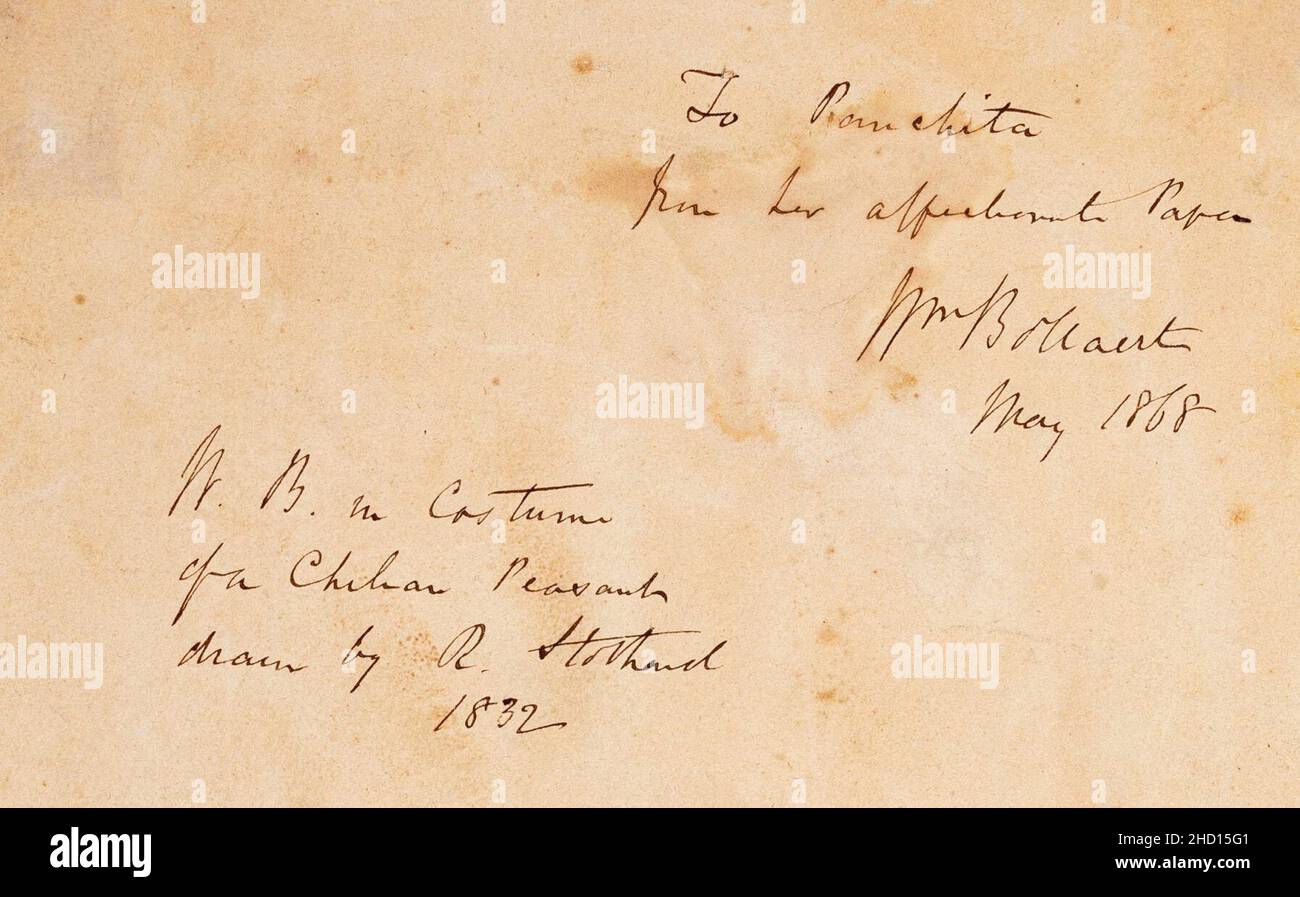 To Panchita
from her affectionate Papa
Wm Bollaert
May 1868
W. B. in Costume
of a Chilian Peasant
drawn by R. Stothard
1832
alamy
alamy
Image ID: 2HD15G1
www.alamy.com